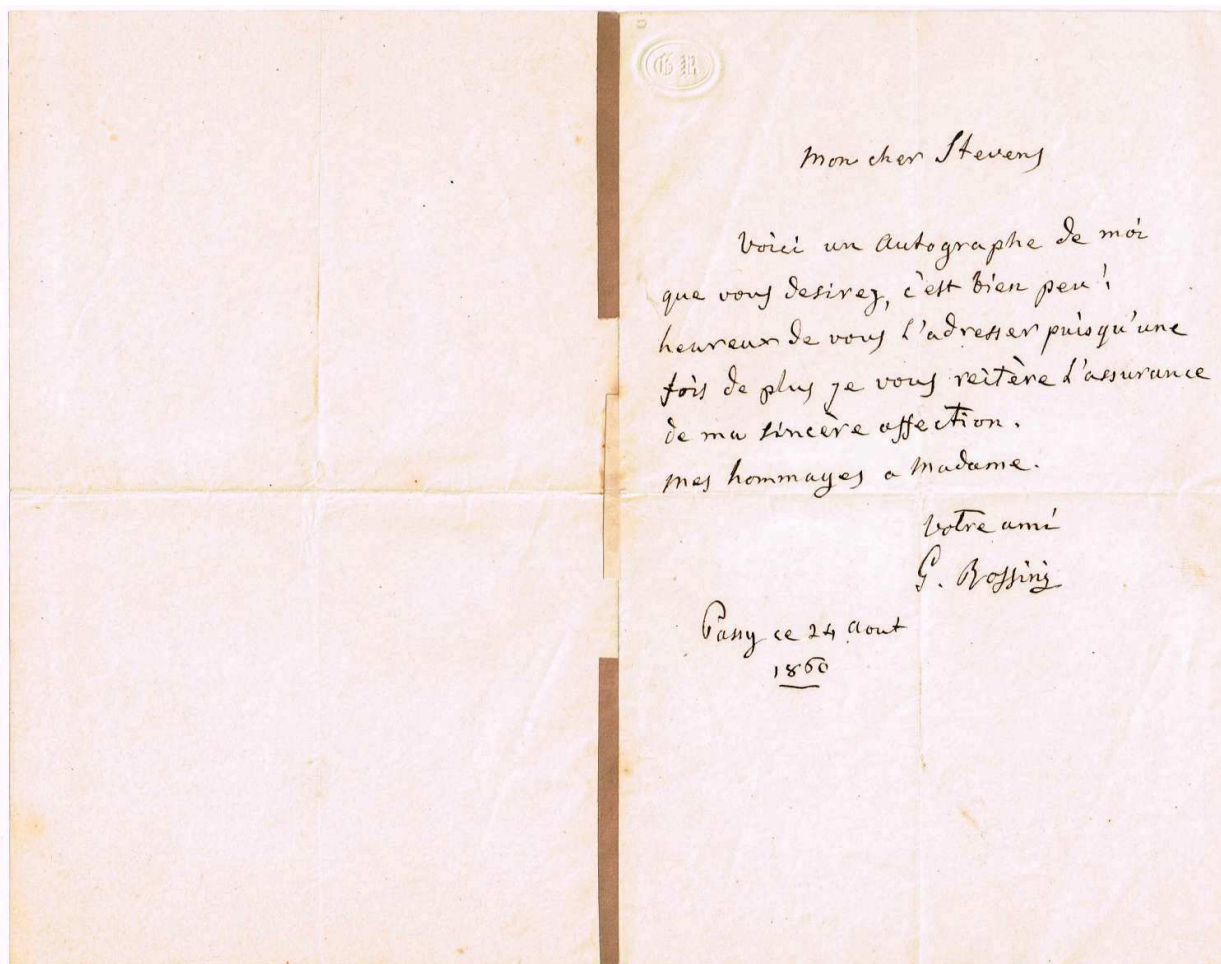 GR
Mon cher Stevens
Voici un Autographe de moi
que vous desirez, c'est bien peu!
heureux de vous l'adresser puisqu'une
fois de plus je vous reitère l'assurance
de ma sincère affection.
Mes hommages a Madame.
Votre ami
G. Rossini
Passy ce 24 Aout
1860